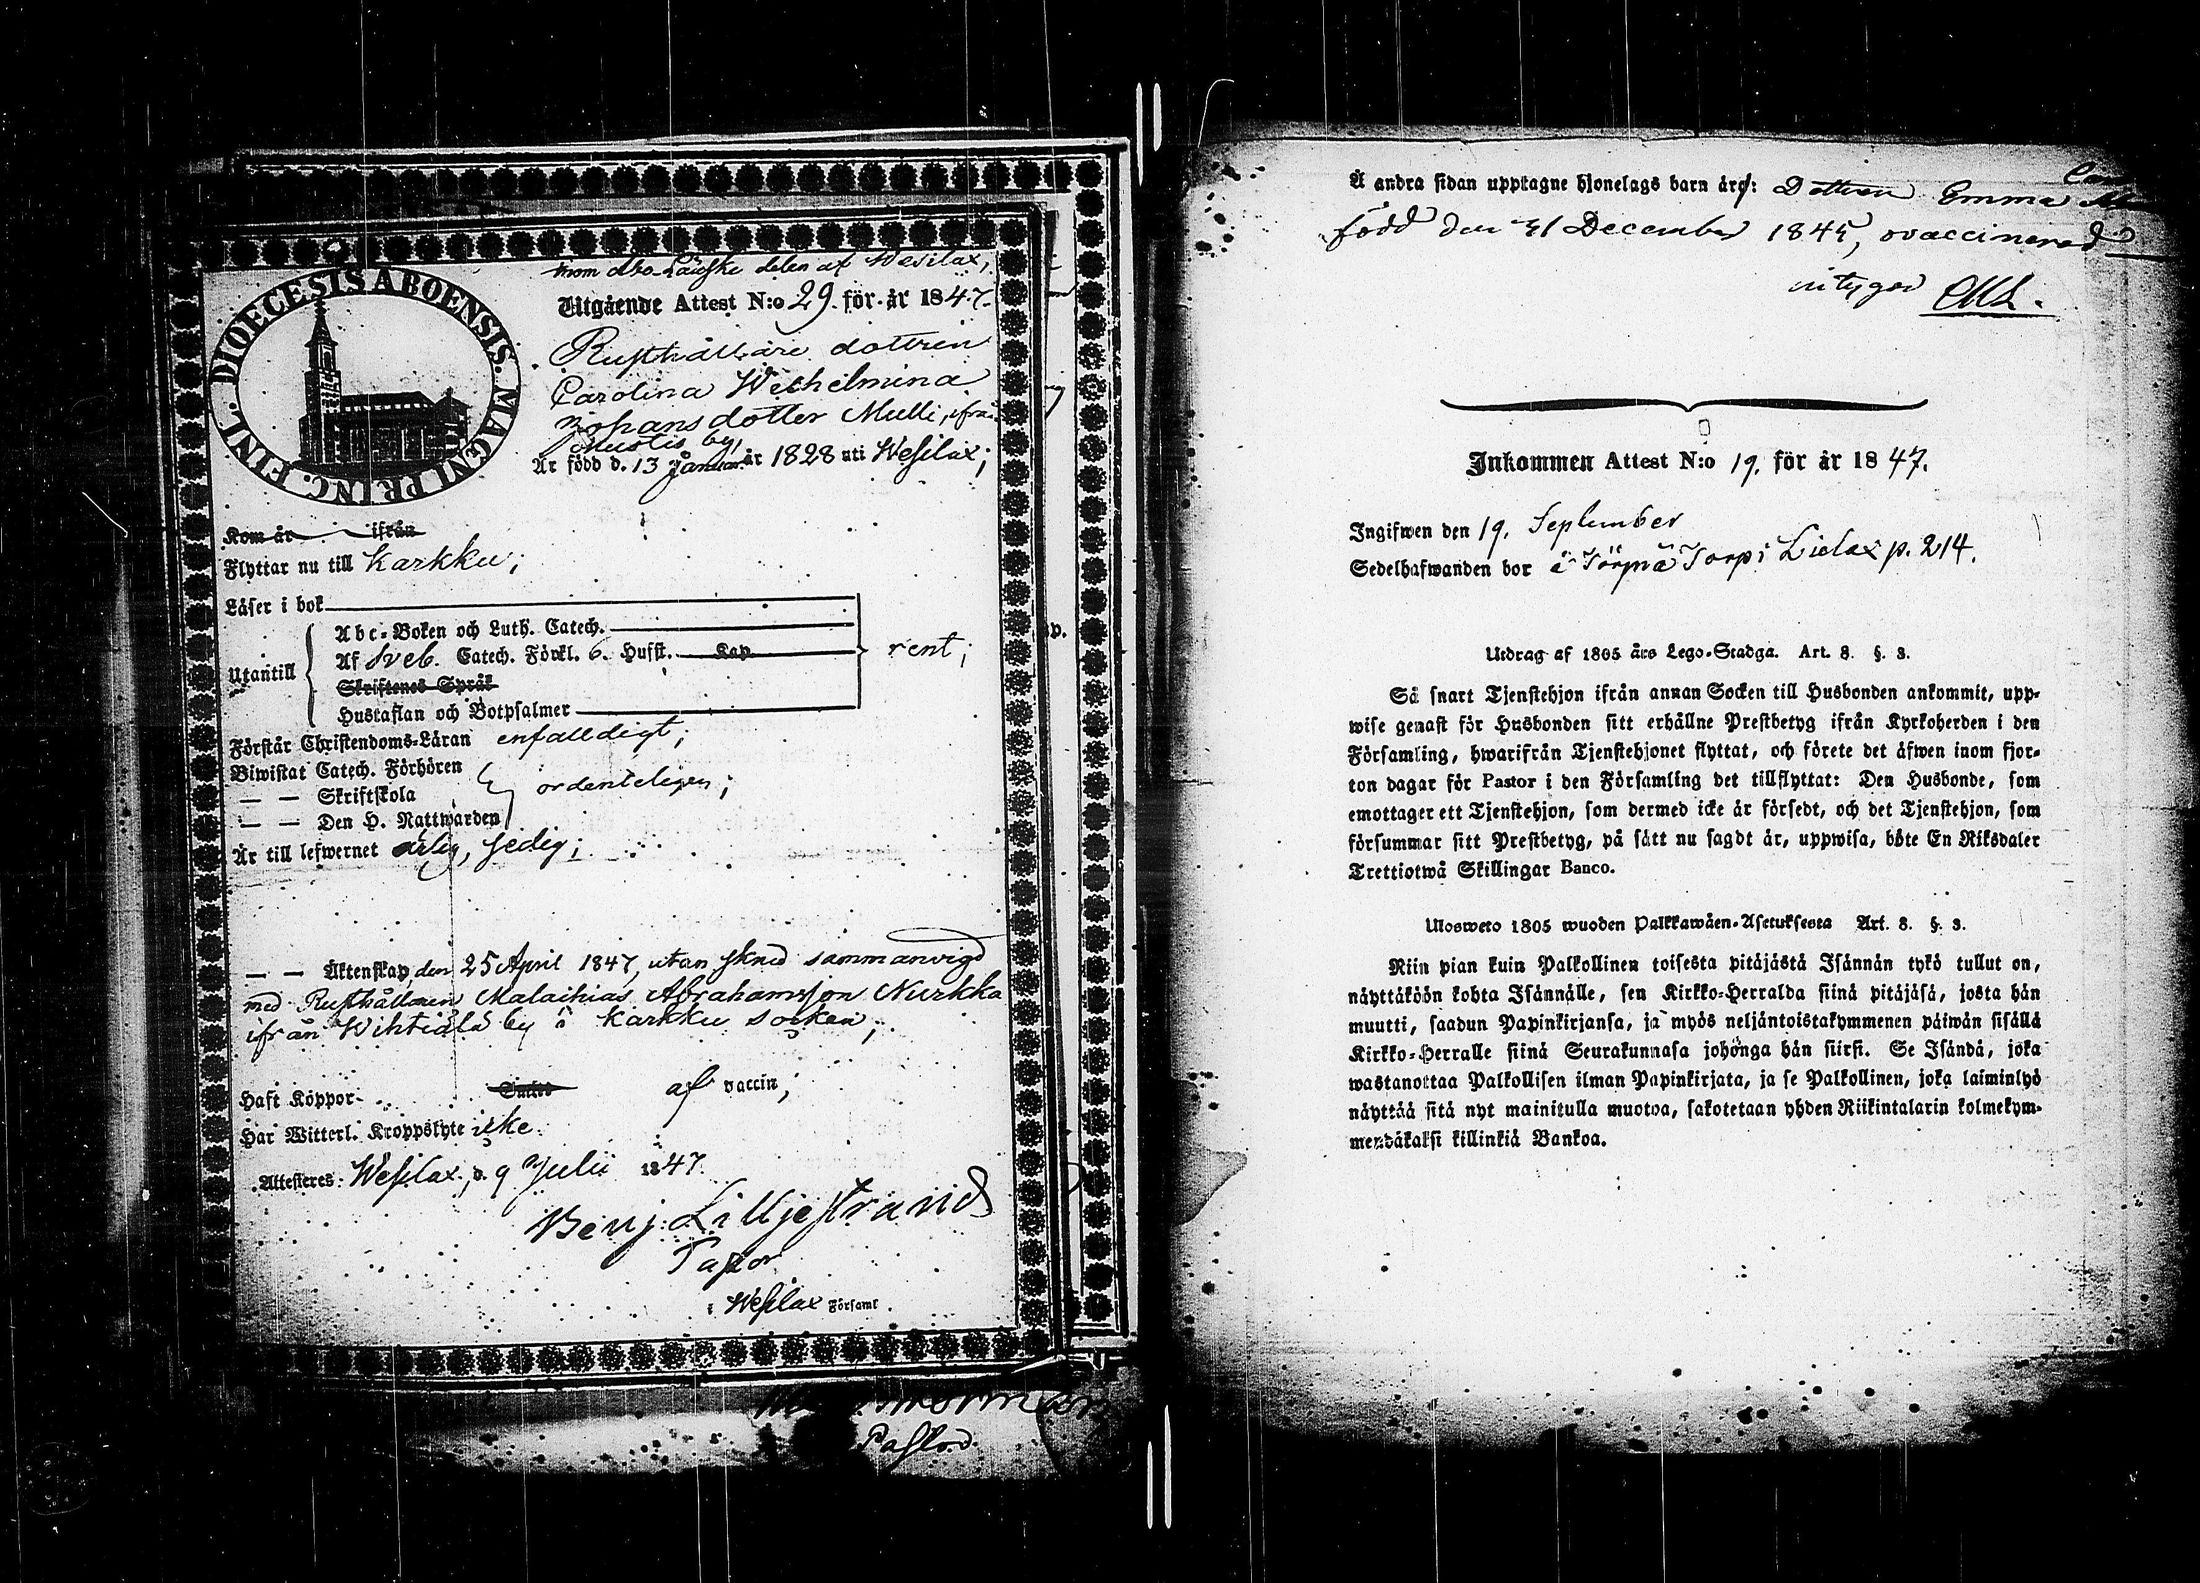 DIOECESIS ABOENSIS. MAGNI PRINC. FINL.
inom Åbo Länske delen af Wesilax,
Utgående Attest N:o 29. för år 1847.
Rusthållare dottren
Carolina Wilhelmina
Johansdotter Mulli, ifrån
Mustis by,
Är född d. 13 Januari år 1828 uti Wesilax;
Kom år ifrån
Flyttar nu till Karkku;
Läser i bok
Utantill
Abc-Boken och Luth. Catech.
Af Sveb. Catech. Förkl. 6. Hufst. Kap
Skriftenes Språk
Hustaflan och Botpsalmer
rent;
Förstår Christendoms-Läran enfalldigt;
Biwistat Catech. Förhören
— — Skriftskola
— — Den H. Nattwarden
ordenteligen;
Är till lefwernet ärlig, sedig;
— — Äktenskap, den 25 April 1847, utan skned sammanvigd
med Rusthållaren Malachias Abrahamsson Nurkka
ifrån Wihtiälä by i Karkku socken;
Haft Koppor af vaccin;
Har Witterl. Kroppslyte icke.
Attesteras Wesilax, d. 9 Julii 1847.
Benj: Lilljestrand
Pastor
i Wesilax Församl.
Pastor.
Å andra sidan upptagne hjonelags barn äro: Dottren Emma
född den 31 December 1845, ovaccinerad
intygar
Inkommen Attest N:o 19. för år 1847.
Ingifwen den 19. September
Sedelhafwanden bor å Törpnä Torp i Lielax p. 214.
Utdrag af 1805 års Lego-Stadga. Art. 8. §. 3.
Så snart Tjenstehjon ifrån annan Socken till Husbonden ankommit, upp-
wise genast för Husbonden sitt erhållne Prestbetyg ifrån Kyrkoherden i den
Församling, hwarifrån Tjenstehjonet flyttat, och förete det äfwen inom fjor-
ton dagar för Pastor i den Församling det tillflyttat: Den Husbonde, som
emottager ett Tjenstehjon, som dermed icke är försedt, och det Tjenstehjon, som
försummar sitt Prestbetyg, på sätt nu sagdt är, uppwisa, böte En Riksdaler
Trettiotwå Skillingar Banco.
Ulosweto 1805 wuoden Palkkawäen-Asetuksesta Art. 8. §. 3.
Niin pian kuin Palkollinen toisesta pitäjästä Isännän tykö tullut on,
näyttäköön kohta Isännälle, sen Kirkko-Herralda siinä pitäjäsä, josta hän
muutti, saadun Papinkirjansa, ja myös neljäntoistakymmenen päiwän sisällä
Kirkko-Herralle siinä Seurakunnasa johönga hän siirsi. Se Isändä, joka
wastanottaa Palkollisen ilman Papinkirjata, ja se Palkollinen, joka laiminlyö
näyttää sitä nyt mainitulla muotoa, sakotetaan yhden Riikintalarin kolmekym-
mendäkaksi killinkiä Bankoa.